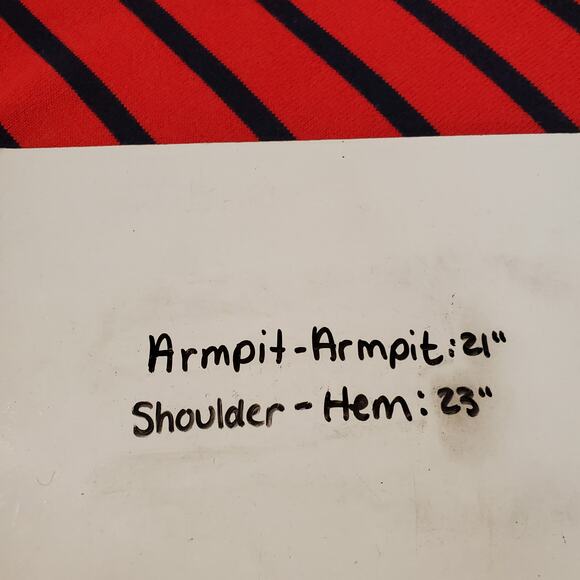 Armpit-Armpit: 21"
Shoulder - Hem: 23"